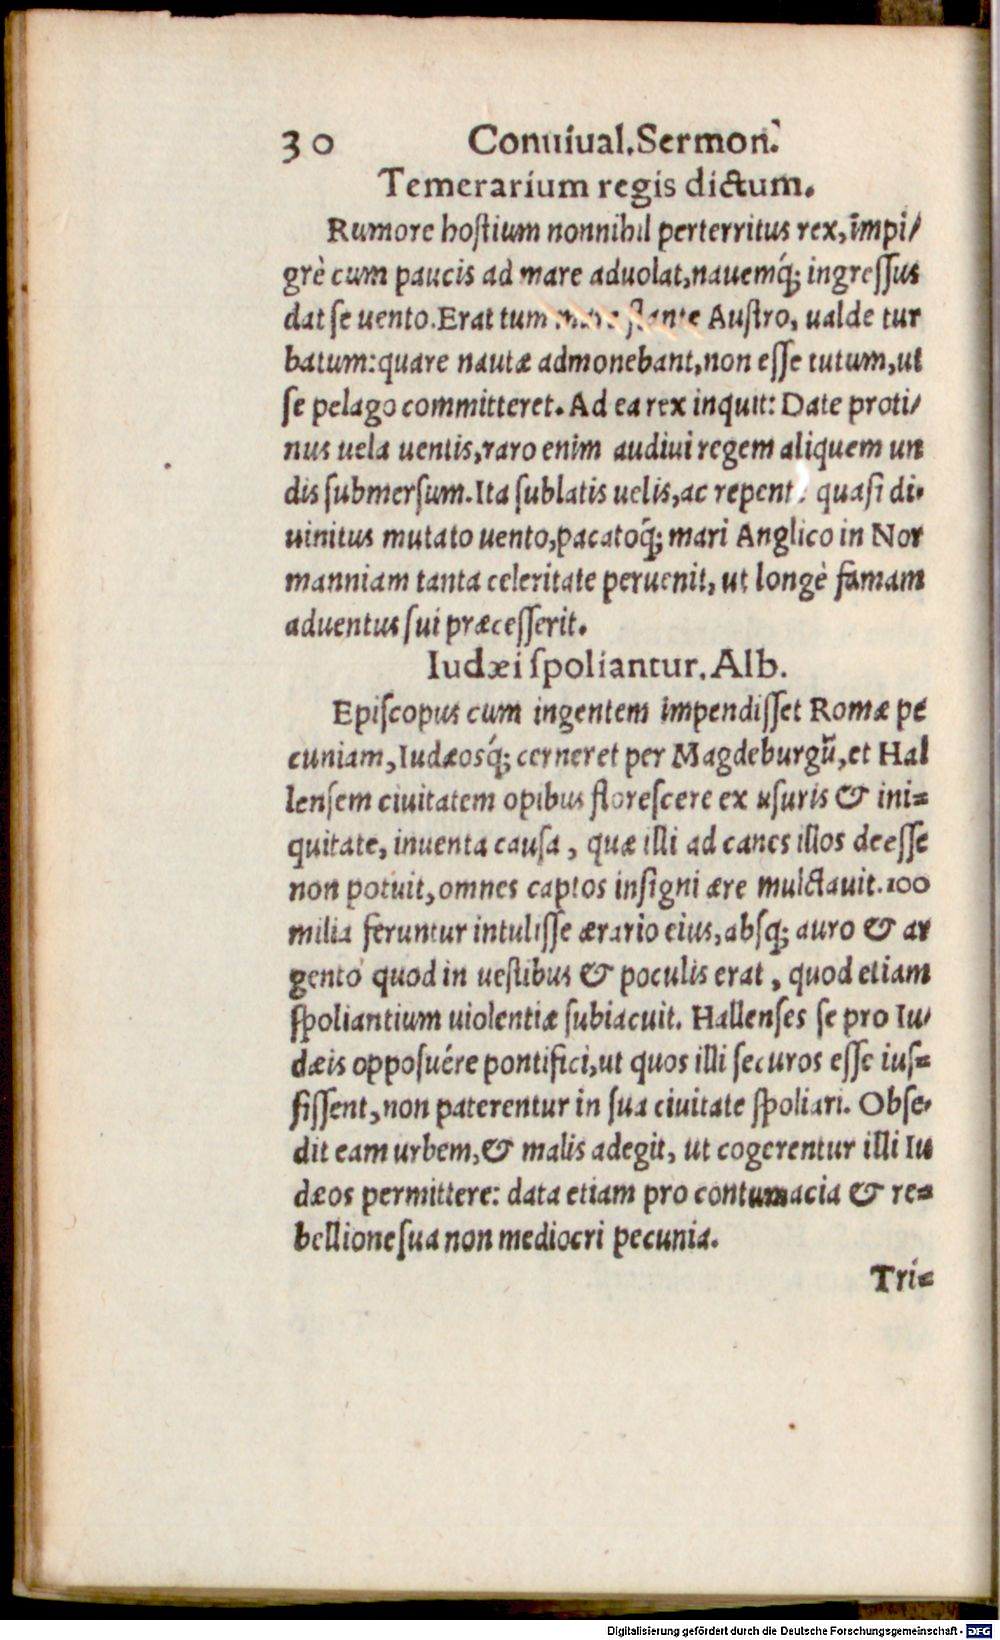 30 Conuiual.Sermon.
Temerarium regis dictum.
Rumore hostium nonnihil perterritus rex, impi/
grè cum paucis ad mare aduolat, nauemq́; ingressus
dat se uento. Erat tum mare flante Austro, ualde tur
batum: quare nautæ admonebant, non esse tutum, ut
se pelago committeret. Ad ea rex inquit: Date proti/
nus uela uentis, raro enim audiui regem aliquem un
dis submersum. Ita sublatis uelis, ac repente quasi di-
uinitus mutato uento, pacatoq́; mari Anglico in Nor
manniam tanta celeritate peruenit, ut longè famam
aduentus sui præcesserit.
Iudæi spoliantur. Alb.
Episcopus cum ingentem impendisset Romæ pe
cuniam, Iudæosq́; cerneret per Magdeburgū, et Hal
lensem ciuitatem opibus florescere ex usuris & ini=
quitate, inuenta causa, quæ illi ad canes illos deesse
non potuit, omnes captos insigni ære mulctauit. 100
milia feruntur intulisse ærario eius, absq; auro & ar
gento quod in uestibus & poculis erat, quod etiam
spoliantium uiolentiæ subiacuit. Hallenses se pro Iu/
dæis opposuére pontifici, ut quos illi securos esse ius=
sissent, non paterentur in sua ciuitate spoliari. Obse-
dit eam urbem, & malis adegit, ut cogerentur illi Iu
dæos permittere: data etiam pro contumacia & re=
bellione sua non mediocri pecunia.
Tri=
Digitalisierung gefördert durch die Deutsche Forschungsgemeinschaft - DFG